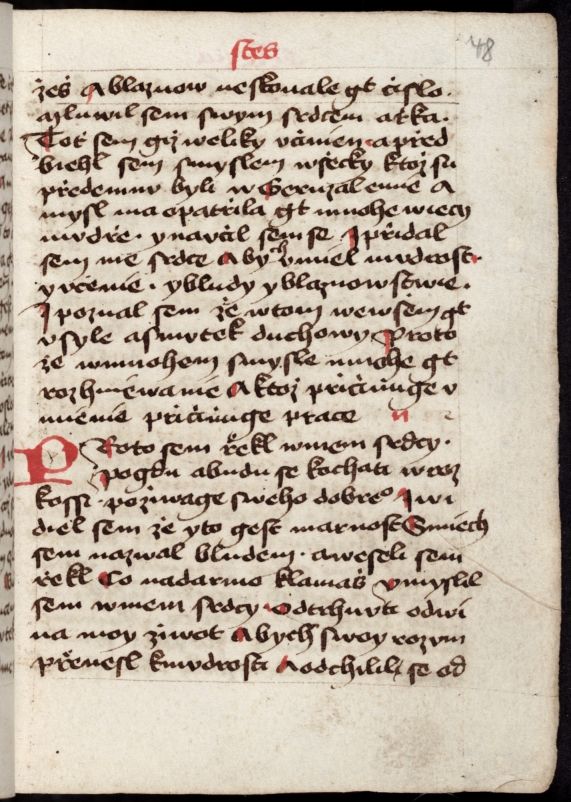 stes
48
żeś A blaznow neskonale gt čislo.
a mluwil sem swym srdcem a rka.
Tot sem giż weliky včinien a pṙed
biehl sem smyslem wsecky ktoż su
pṙedemnu byli w Geruzalemie A
mysl ma opatṙila gt mnohe wiecy
mudṙe. y naučil sem se I pṙidal
sem me srdce Abych vmiel mudrost.
y včenie. y bludy y blaznowstwie.
I poznal sem że w tom we wsem gt
vsyle a smutek duchowy Proto
że w mnohem smysle mnohe gt
rozhniewanie A ktoż pričiňuge v
mienie pričiňuge prace
PRoto sem ṙekl w mem srdcy.
pogdu a budu se kochati w roz
kossi. pożiwage sweho dobreo I wi
diel sem że y to gest marnost Smiech
sem nazwal bludem. a weseli sem
ṙekl Co nadarmo klamaś vmyslil
sem w mem srdcy. odtrhnuti od wi
na moy żiwot Abych swoy rozum
pṙenesl k mudrosti A odchilili se od